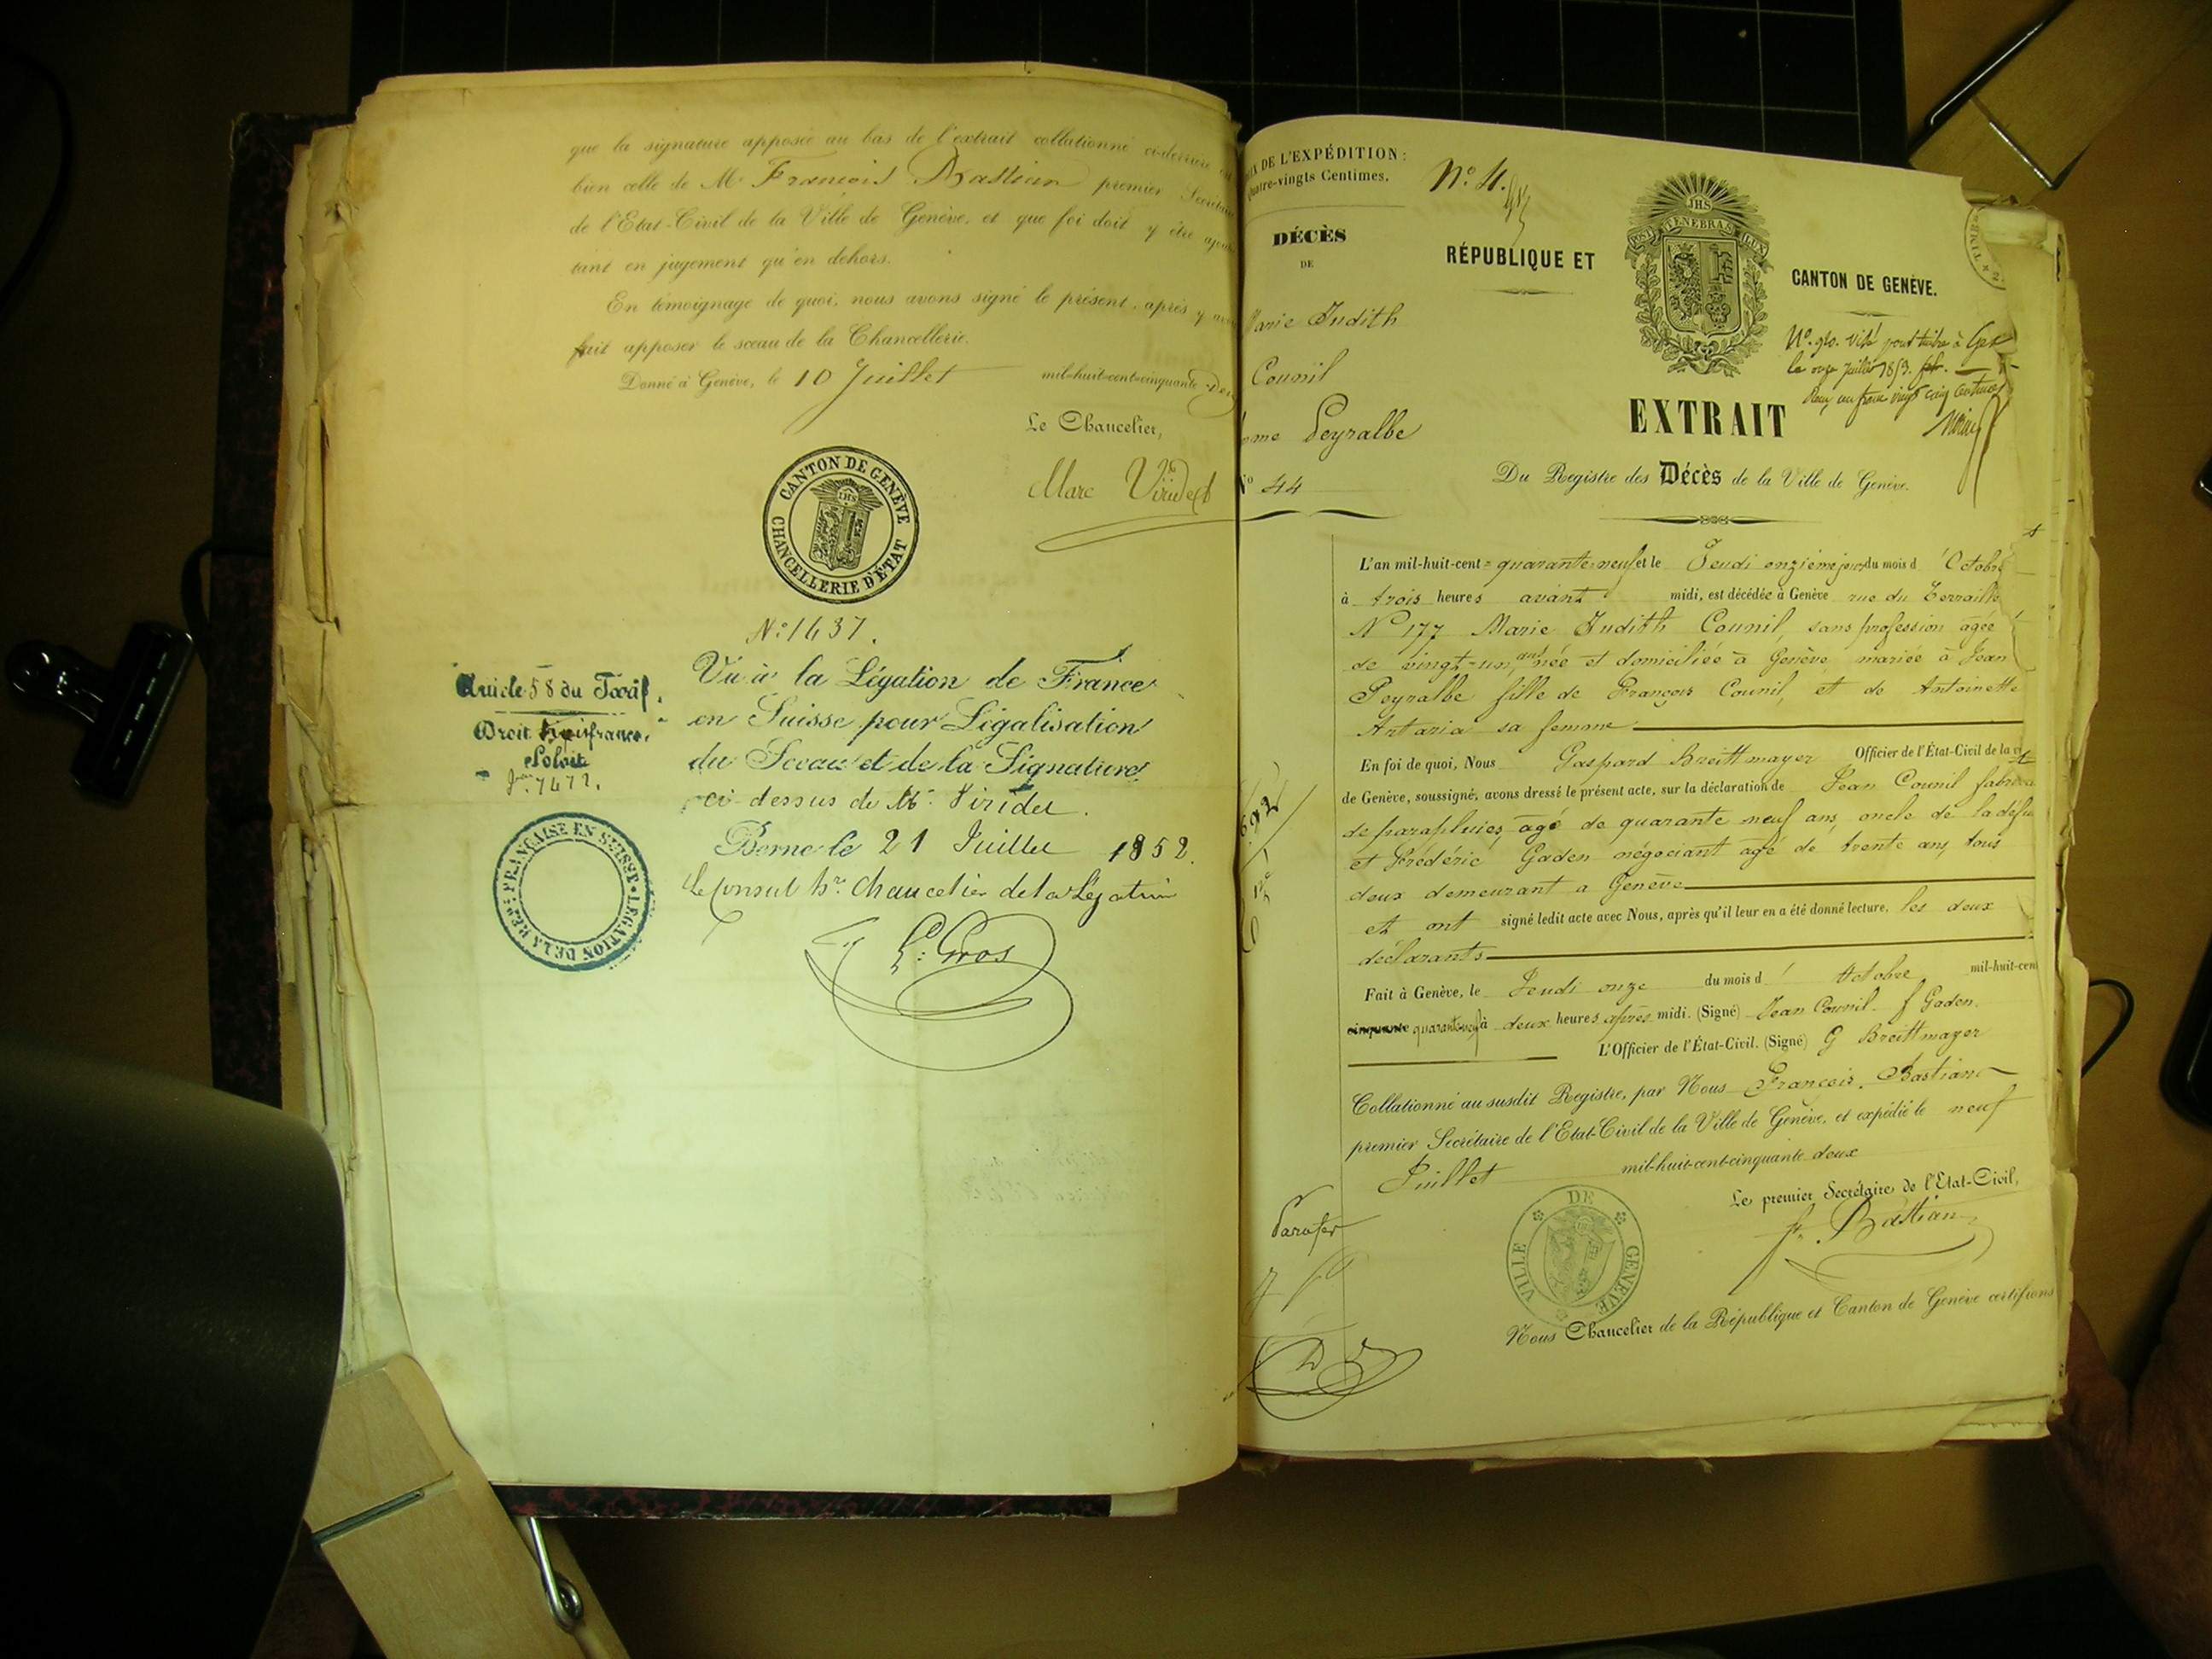 que la signature apposée au bas de l'extrait collationné ci-derrière
bien celle de Mr François Bastian premier Secrétaire
de l'Etat-Civil de la Ville de Genève, et que foi doit y être
tant en jugement qu'en dehors.
En témoignage de quoi, nous avons signé le présent, après y
fait apposer le sceau de la Chancellerie.
Donné à Genève, le 10 Juillet mil-huit-cent-cinquante
Le Chancelier,
Marc Viridet
CANTON DE GENÈVE
CHANCELLERIE D'ÉTAT
No 1437.
Article 58 du Tarif.
Droit francs.
Vu à la Légation de France
en Suisse pour Légalisation
du Sceau et de la Signature
ci-dessus de Mr. Viridet.
Berne le 21 Juillet 1852.
Le Consul hre. Chancelier de la Légation
Gros
LÉGATION DE LA RÉP: FRANÇAISE EN SUISSE
DE L'EXPÉDITION:
Quatre-vingts Centimes.
DÉCÈS
DE
Marie Judith
Counil
Peyralbe
No 44
No 4.
RÉPUBLIQUE ET
CANTON DE GENÈVE.
POST TENEBRAS LUX
IHS
le onze Juillet 1853.
EXTRAIT
Du Registre des Décès de la Ville de Genève.
L'an mil-huit-cent-quarante-neuf et le Jeudi onzième jour du mois d'Octobre
à trois heures avant midi, est décédée à Genève rue du
No 177 Marie Judith Counil, sans profession agée
de vingt-un ans née et domiciliée à Genève mariée à Jean
Peyralbe fille de François Counil, et de Antoinette
Artaria sa femme
En foi de quoi, Nous Gaspard Breittmayer Officier de l'État-Civil de la
de Genève, soussigné, avons dressé le présent acte, sur la déclaration de Jean Counil
de parapluies, agé de quarante neuf ans, oncle de la
et Frédéric Gaden négociant agé de trente ans, tous
deux demeurant a Genève
et ont signé ledit acte avec Nous, après qu'il leur en a été donné lecture. les deux
déclarants
Fait à Genève, le Jeudi onze du mois d'Octobre mil-huit-cent
cinquante quarante neuf à deux heures après midi. (Signé) Jean Counil. f Gaden.
L'Officier de l'État-Civil. (Signé) G Breittmayer
Collationné au susdit Registre, par Nous François Bastian
premier Secrétaire de l'Etat-Civil de la Ville de Genève, et expédié le neuf
Juillet mil-huit-cent-cinquante deux
Le premier Secrétaire de l'Etat-Civil,
fs. Bastian
VILLE DE GENÈVE
Nous Chancelier de la République et Canton de Genève certifions